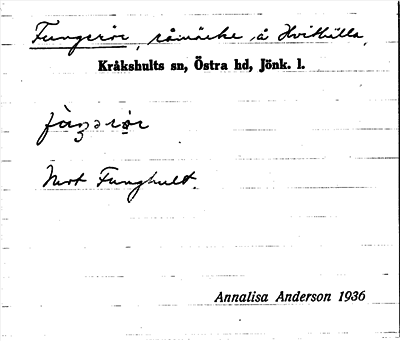 Fungerör, råmärke å Hvitkulla,
Kråkshults sn, Östra hd, Jönk. l.
Mot Funghult.
Annalisa Anderson 1936